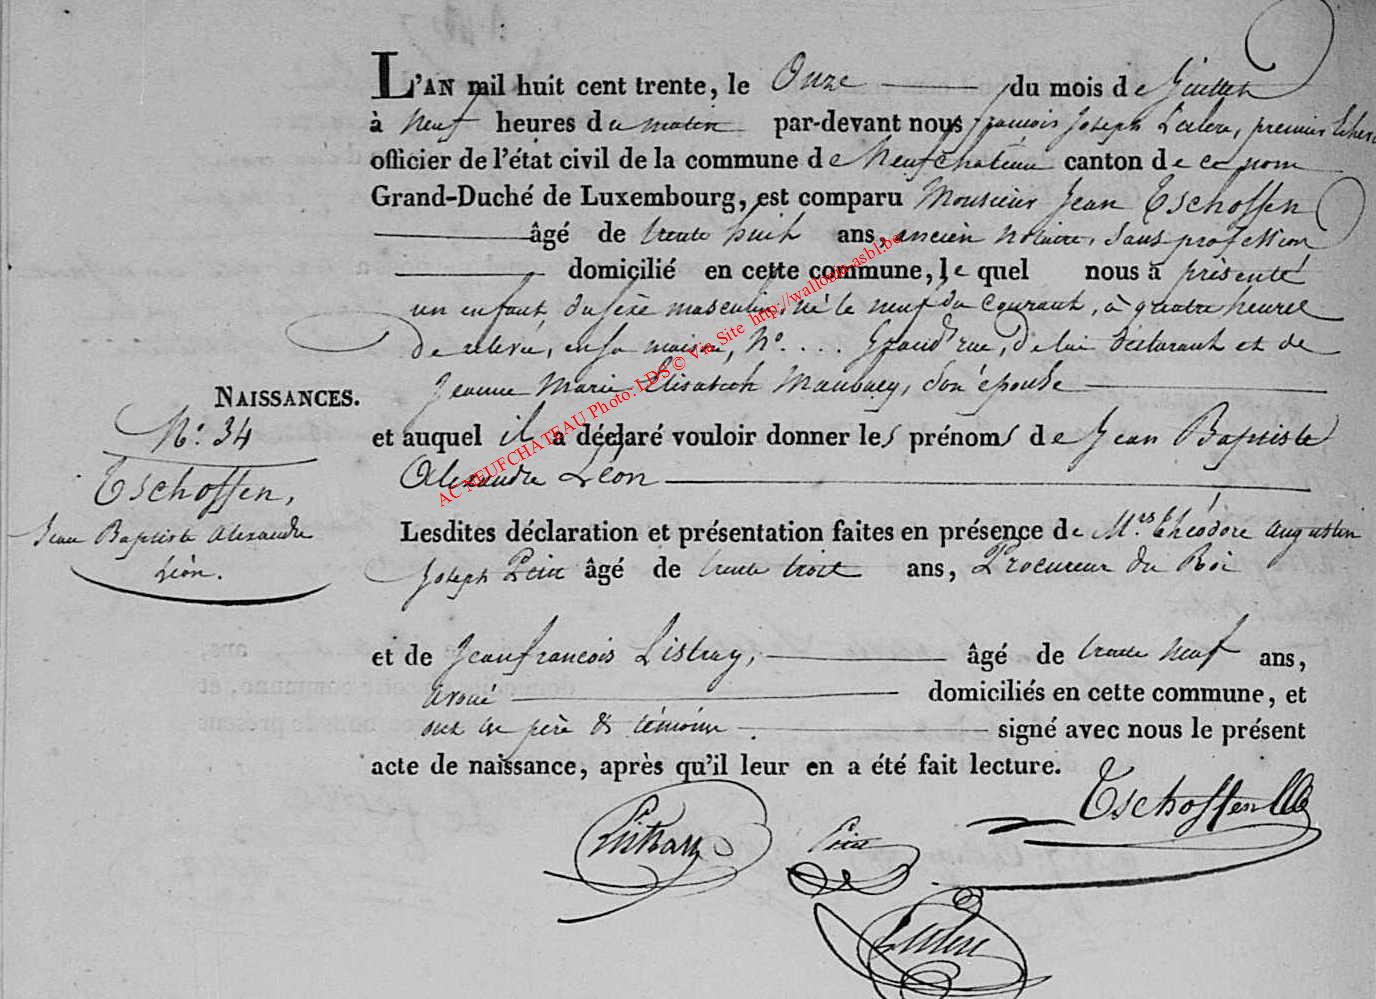 L'AN mil huit cent trente, le Onze du mois de Juillet
à Neuf heures du matin par-devant nous françois Joseph premier Echevin
officier de l'état civil de la commune de Neufchateau canton de ce nom
Grand-Duché de Luxembourg, est comparu Monsieur Jean Tschoffen
âgé de trente huit ans, ancien Notaire, sans profession
domicilié en cette commune, le quel nous a présenté
un enfant du sexe masculin, né le neuf du courant, à quatre heures
de relevé, en sa maison, No. ... Grand'rue, de lui Déclarant et de
Jeanne Marie Elisabeth son épouse
NAISSANCES.
No. 34
Tschoffen,
Jean Baptiste Alexandre
Léon.
et auquel il a déclaré vouloir donner les prénoms de Jean Baptiste
Alexandre Léon
Lesdites déclaration et présentation faites en présence de Mrs. Théodore Augustin
Joseph Petit âgé de trente trois ans, Procureur du Roi
et de Jean françois Listray, âgé de trente neuf ans,
avoué domiciliés en cette commune, et
ont les père & témoins signé avec nous le présent
acte de naissance, après qu'il leur en a été fait lecture.
Tschoffen
Listray
Petit
AC NEUFCHATEAU Photo: LDS© Via Site http://wallonia-asbl.be